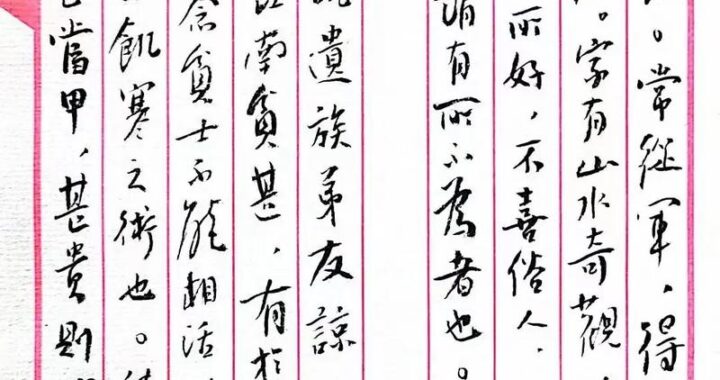 。常從軍,得
。家有山水奇觀,
所好,不喜俗人,
有所不為者也。
遺族弟友諒
南貧甚,有於
念貧士不能相活,
飢寒之術也。
當甲,甚貴則